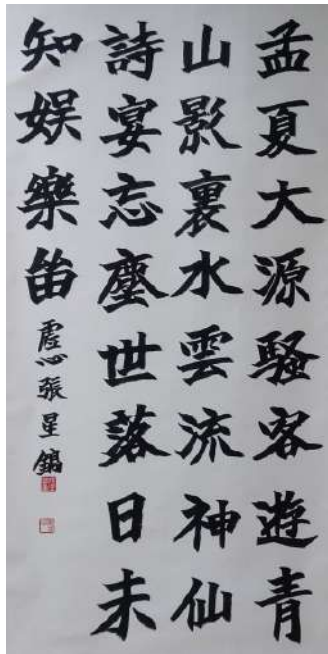 孟夏大源騷客遊青
山影裏水雲流神仙
詩宴忘塵世落日未
知娛樂
虛心張星鎬